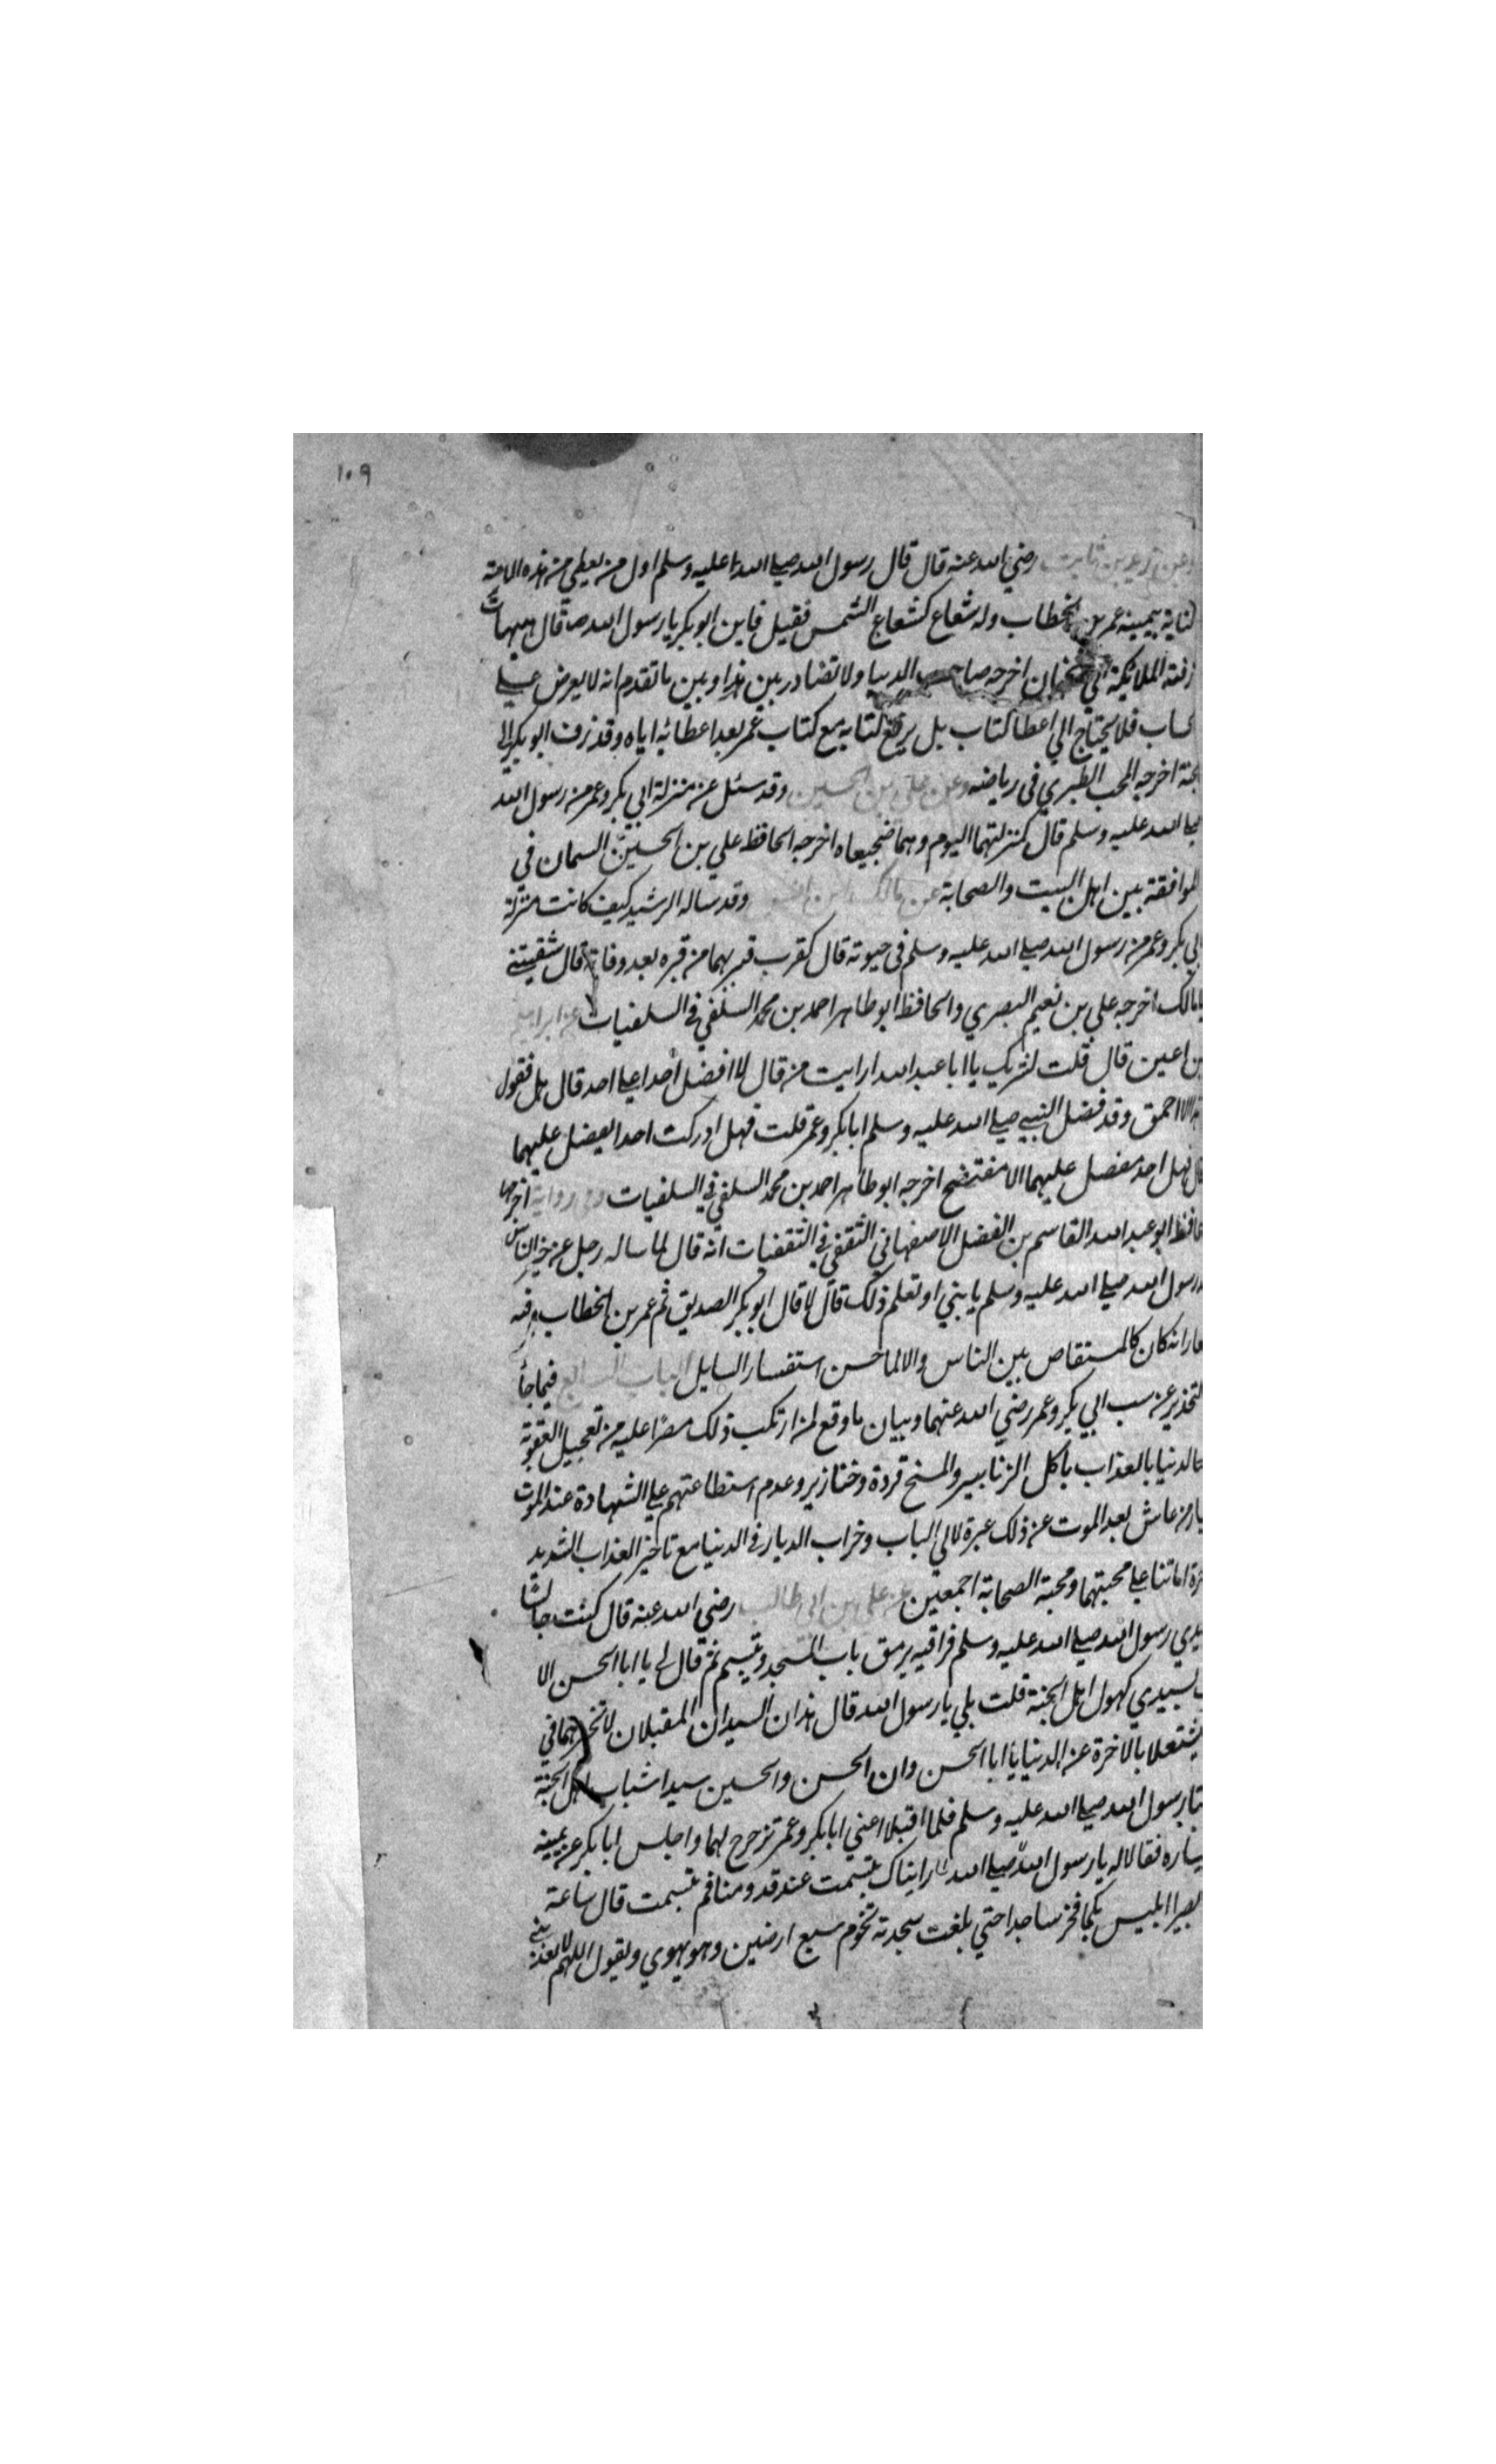 ١٠٩
وعن زيد بن ثابت رضي الله عنه قال قال رسول الله صلى الله عليه وسلم اول من يعطى من هذه الامة
كتابه بيمينه عمر بن الخطاب وله شعاع كشعاع الشمس فقيل فاين ابو بكر يا رسول الله صـ قال هيهات
زفته الملائكة الى اخرجه صاحب ولا تضاد بين هذا وبين ما تقدم انه لا يعرض على
الحساب فلا يحتاج الي اعطا كتاب بل يرفع كتابه مع كتاب عمر بعد اعطائه اياه وقد زف ابو بكر الى
الجنة اخرجه المحب الطبري في رياضه وعن علي بن الحسين وقد سئل عن منزلة ابي بكر وعمر من رسول الله
صلى الله عليه وسلم قال كمنزلتهما اليوم وهما ضجيعاه اخرجه الحافظ علي بن الحسين السمان في
الموافقة بين اهل البيت والصحابة عن مالك بن انس وقد ساله الرشيد كيف كانت منزلة
ابي بكر وعمر من رسول الله صلى الله عليه وسلم في حيوته قال كقرب قبريهما من قبره بعد وفاته قال شفيتني
يا مالك اخرجه علي بن نعيم البصري والحافظ ابو طاهر احمد بن محمد السلفي في السلفيات عن ابراهيم
بن اعين قال قلت لشريك يا ابا عبد الله ارايت من قال لا افضل أحدا على احد قال بل فقول
الا احمق وقد فضل النبي صلى الله عليه وسلم ابا بكر وعمر قلت فهل ادركت احدا يفضل عليهما
قال فهل احد مفضل عليهما الا مفتضح اخرجه ابو طاهر احمد بن محمد السلفي في السلفيات وفي رواية اخرجها
الحافظ ابو عبد الله القاسم بن الفضل الاصفهاني الثقفي في الثقفيات انه قال لما ساله رجل عن خير الناس
بعد رسول الله صلى الله عليه وسلم يا بني او تعلم ذلك قال لا قال ابو بكر الصديق ثم عمر بن الخطاب وفيه
اشعار انه كان كالمستفاض بين الناس والا لما حسن استفسار السايل الباب السابع فيما جأ
التحذير عن سب ابي بكر وعمر رضي الله عنهما وبيان ما وقع لمن ارتكب ذلك مصرًا عليه من تعجيل العقوبة
في الدنيا بالعذاب باكل الزنابير والمسخ قردة وخنازير وعدم استطاعتهم على الشهادة عند الموت
من عاش بعد الموت عن ذلك عبرة لاولي الباب وخراب الديار في الدنيا مع تاخير العذاب الشديد
اماتنا على محبتهما ومحبة الصحابة اجمعين عن علي بن ابي طالب رضي الله عنه قال كنت جالسًا
بين يدي رسول الله صلى الله عليه وسلم فراقبه يرمق باب المسجد وتبسم ثم قال لي يا ابا الحسن الا
بسيدي كهول اهل الجنة قلت بلى يا رسول الله قال هذان السيدان المقبلان لا تخبرهما في
يشتغلا بالاخرة عن الدنيا يا ابا الحسن وان الحسن والحسين سيدا شباب اهل الجنة
رسول الله صلى الله عليه وسلم فلما اقبلا اعني ابا بكر وعمر تزحزح لهما واجلس ابا بكر عن يمينه
يساره فقالا له يا رسول الله صلى الله رايناك تبسمت عند قدومنا فمم تبسمت قال ساعة
بصر ابليس بكما فخر ساجدا حتى بلغت سجدته تخوم سبع ارضين وهو يهوي ويقول اللهم لا تعذبني